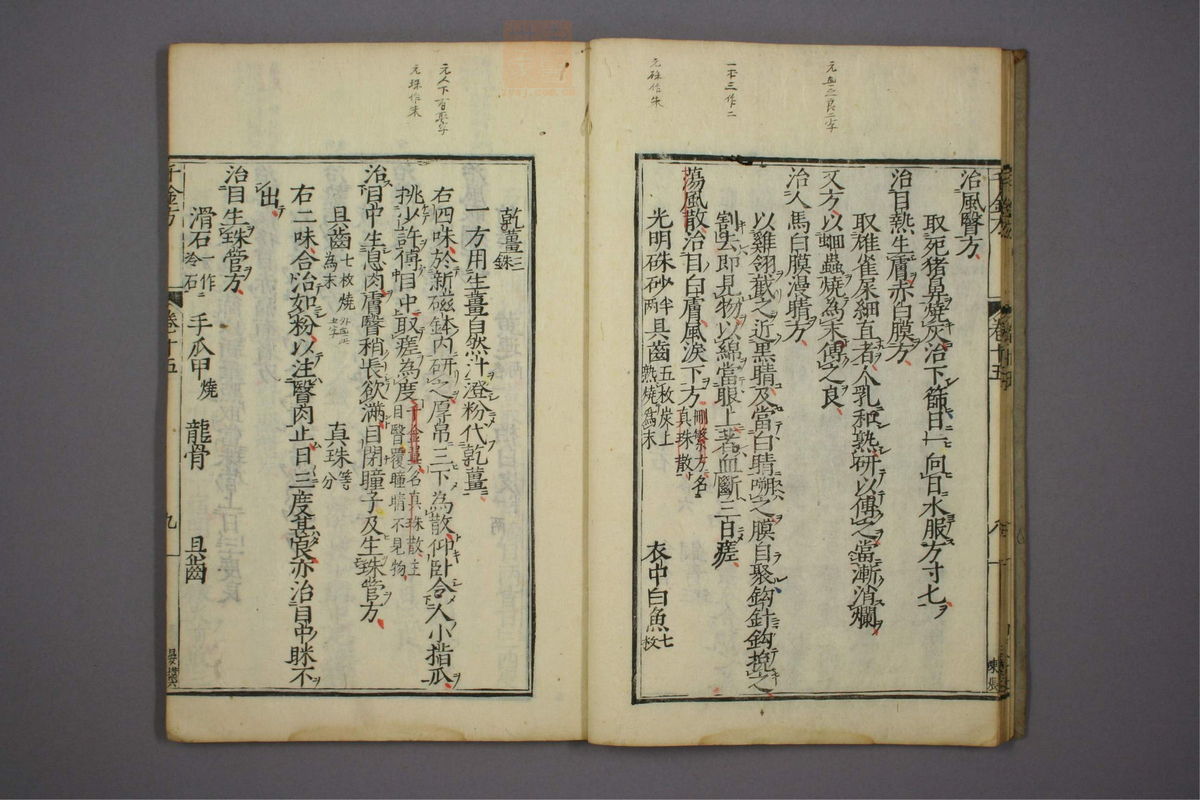 元血立良二字
一本三作二
元硃作朱
千金方
卷十五
治風瞖方
取死猪鼻燒灰治下篩日一向日水服方寸七
治目熱生膚赤白膜方
取雄雀屎細直者人乳和熟研以傅之當漸消爛
又方以蛔蟲燒為末傅之良
治人馬白膜漫睛方
以雞翎截之近黑睛及當白睛嘲之膜自聚鈎針鈎挽之
割去即見物以綿當眼上著血斷三日瘥
蕩風散治目白膚風淚下方刪繁方名真珠散
光明硃砂半兩 貝齒五枚炭上熟燒為末 衣中白魚七枚
元人下有患字
元珠作朱
乾薑三銖
一方用生薑自然汁澄粉代乾薑
右四味於新磁鉢內研之厚帛三下為散仰臥令人小指瓜
挑少許傅目中取瘥為度千金翼名真珠散主目瞖覆瞳睛不見物
治目中生息肉膚瞖稍長欲滿目閉瞳子及生珠管方
貝齒七枚燒為末 真珠等分
右二味合治如粉以注瞖肉止日三度甚良亦治目中眯不
出
治目生珠管方
滑石一作冷石 手爪甲燒 龍骨 貝齒
千金方
卷十五
九